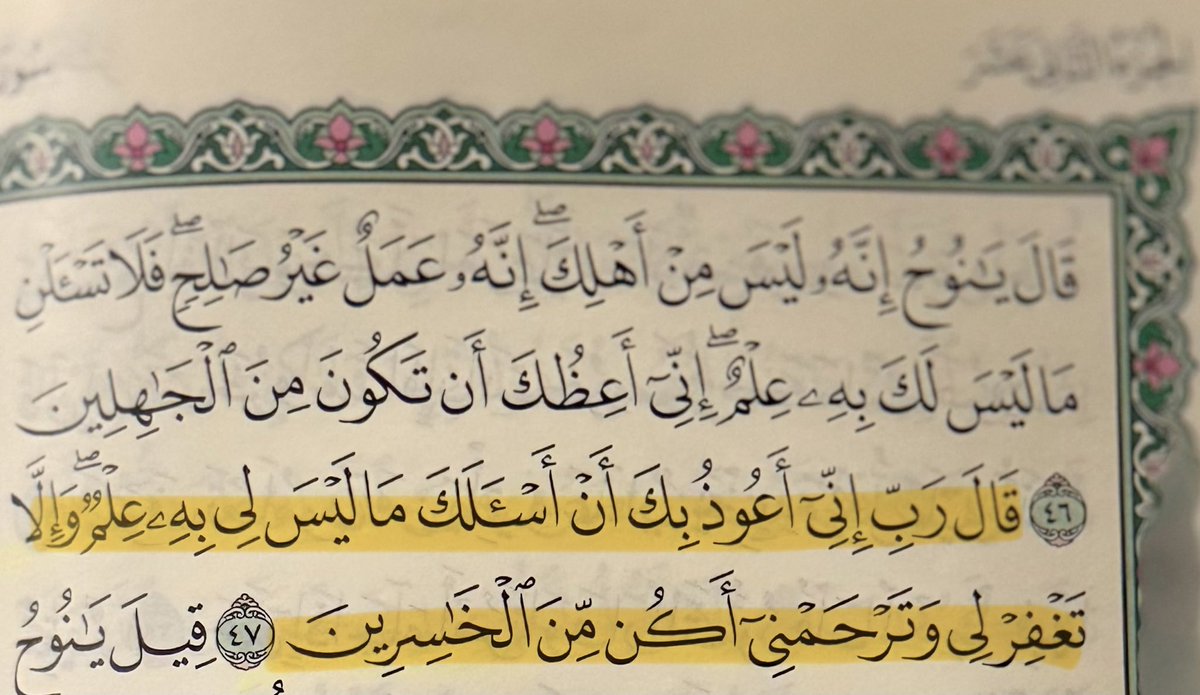 الجزء الثاني عشر
قَالَ يَـٰنُوحُ إِنَّهُۥ لَيۡسَ مِنۡ أَهۡلِكَۖ إِنَّهُۥ عَمَلٌ غَيۡرُ صَـٰلِحٖۖ فَلَا تَسۡـَٔلۡنِ
مَا لَيۡسَ لَكَ بِهِۦ عِلۡمٌۖ إِنِّيٓ أَعِظُكَ أَن تَكُونَ مِنَ ٱلۡجَـٰهِلِينَ
٤٦ قَالَ رَبِّ إِنِّيٓ أَعُوذُ بِكَ أَنۡ أَسۡـَٔلَكَ مَا لَيۡسَ لِي بِهِۦ عِلۡمٞۖ وَإِلَّا
تَغۡفِرۡ لِي وَتَرۡحَمۡنِيٓ أَكُن مِّنَ ٱلۡخَـٰسِرِينَ ٤٧ قِيلَ يَـٰنُوحُ